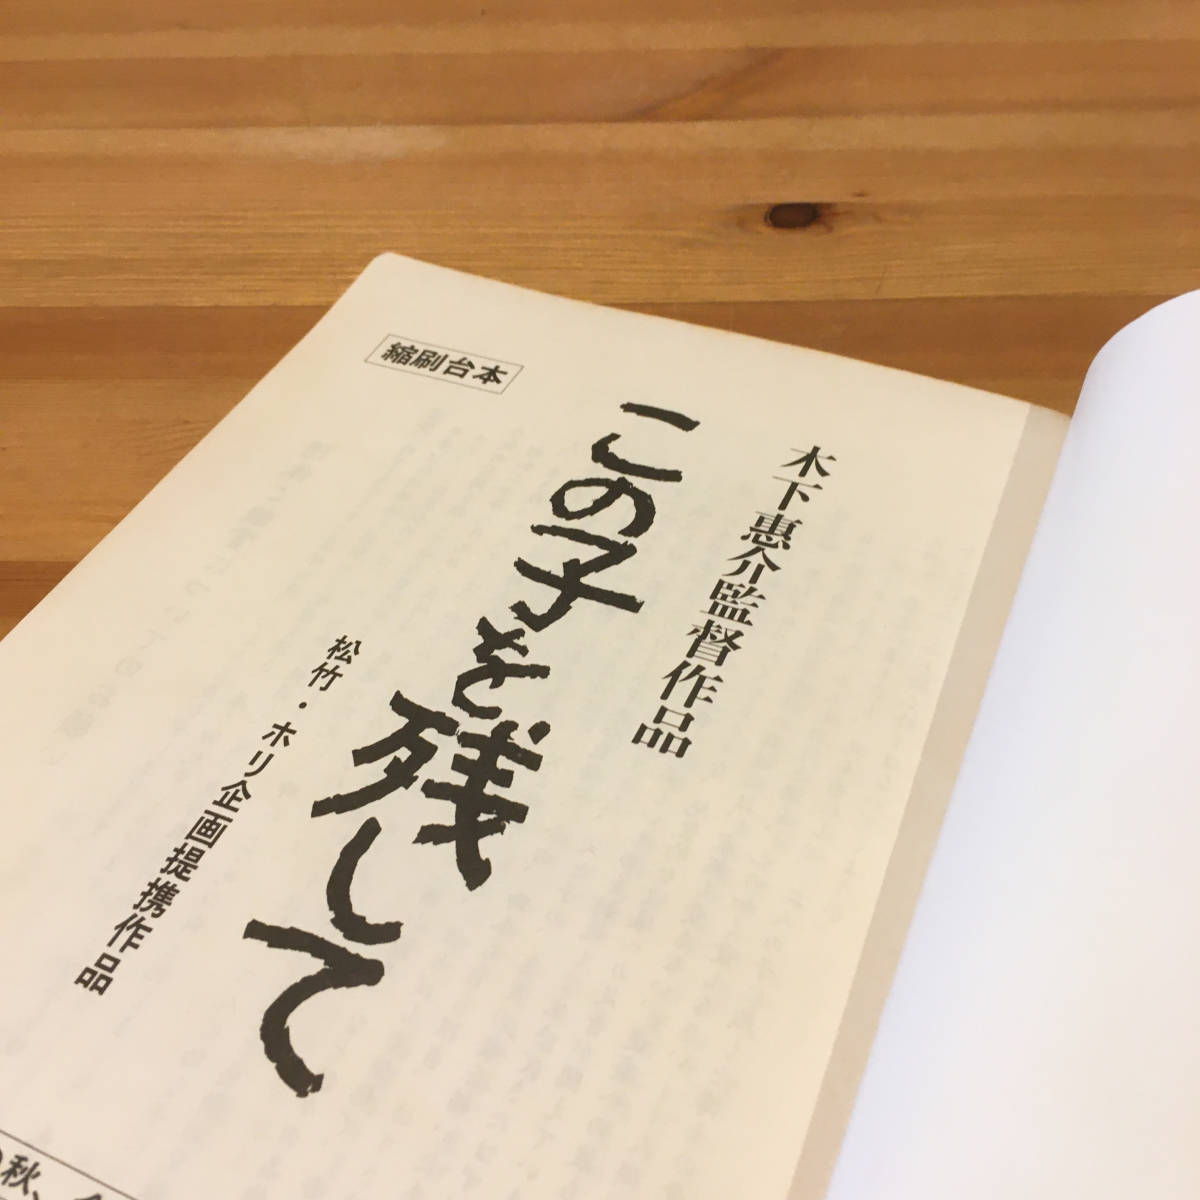 木下惠介監督作品
この子を残して
松竹・ホリ企画提携作品
縮刷台本
秋、